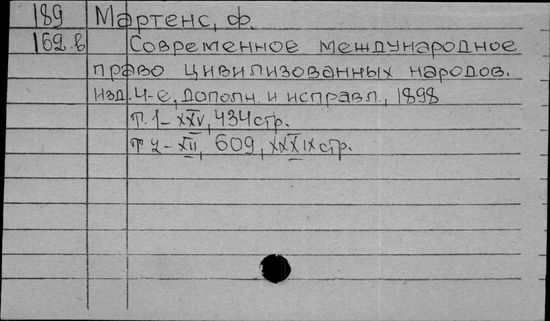 189 Мартенс, Ф.
162.в Современное международное
право цивилизованных народов.
изд. 4-е, дополн. и исправл., 1898
т. 1 - XXV, 434 стр.
т 2 - XII, 609, XXXIX стр.